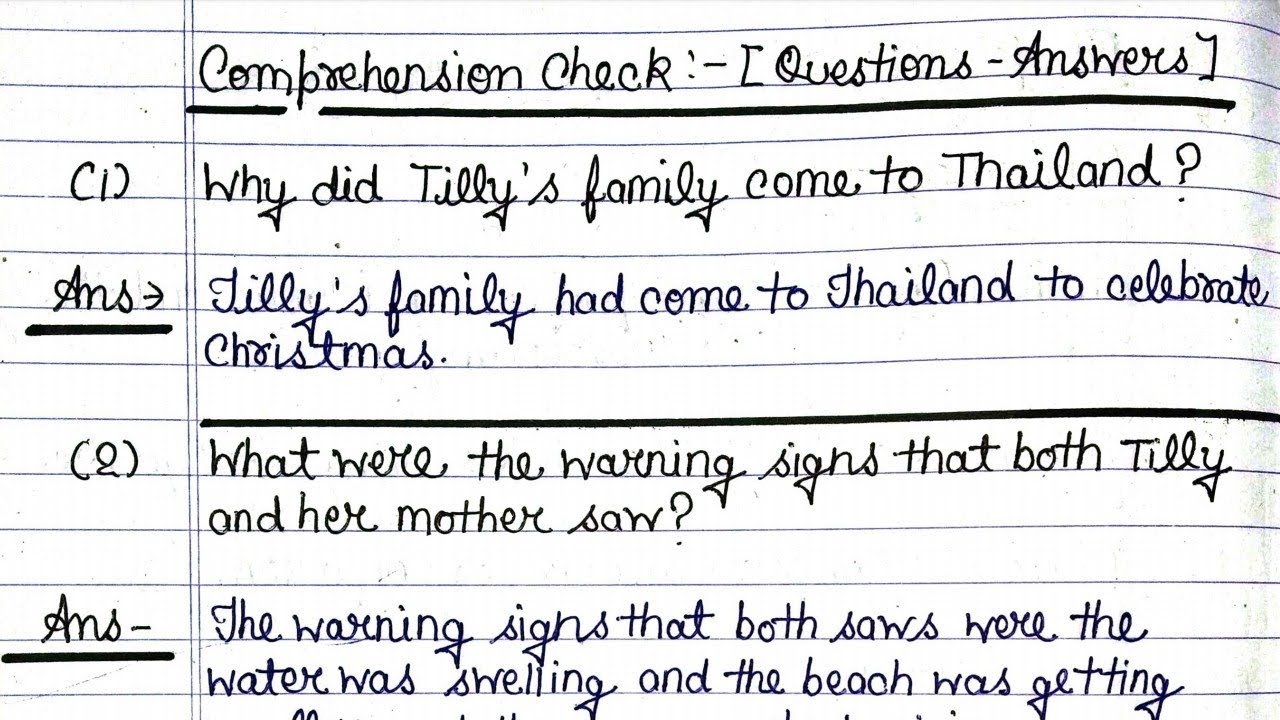 Comprehension Check :- [Questions - Answers]
(1) Why did Tilly's family come to Thailand?
Ans → Tilly's family had come to Thailand to celebrate
Christmas.
(2) What were the warning signs that both Tilly
and her mother saw?
Ans - The warning signs that both saws were the
water was swelling and the beach was getting